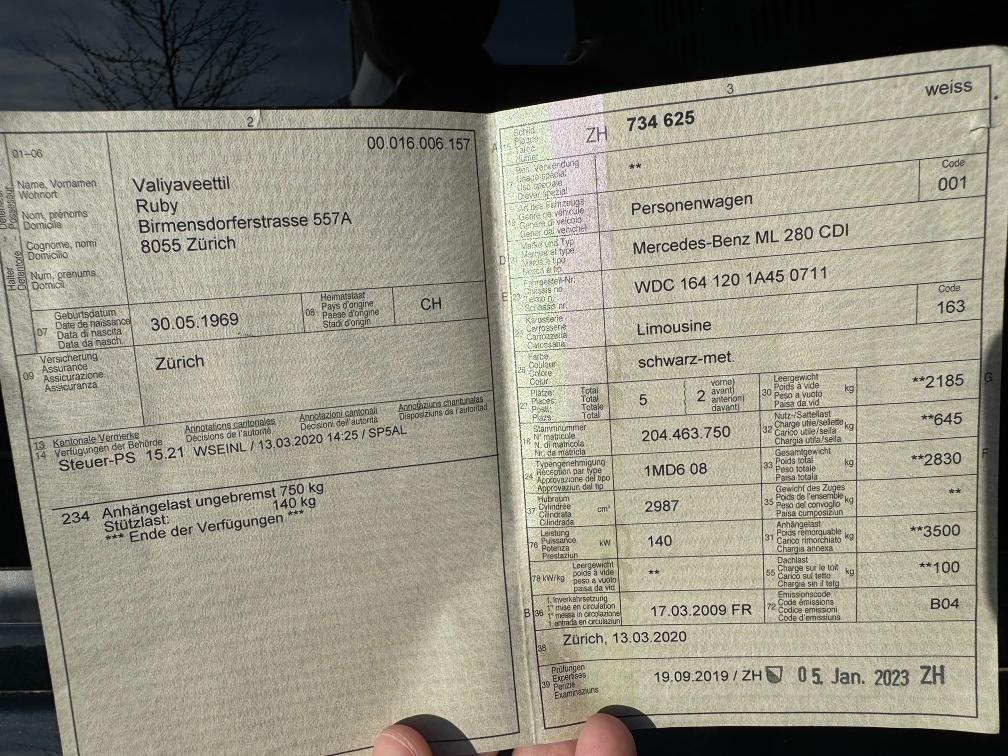 2
00.016.006.157
01–06
Name, Vornamen
Wohnort
Nom, prénoms
Domicile
Cognome, nomi
Domicilio
Num, prenums
Domicil
Valiyaveettil
Ruby
Birmensdorferstrasse 557A
8055 Zürich
07
Geburtsdatum
Date de naissance
Data di nascita
Data da nasch.
30.05.1969
08
Heimatstaat
Pays d'origine
Paese d'origine
Stadi d'origin
CH
09
Versicherung
Assurance
Assicurazione
Assicuranza
Zürich
13
14
Kantonale Vermerke
Verfügungen der Behörde
Annotations cantonales
Décisions de l'autorité
Annotazioni cantonali
Decisioni dell'autorità
Annotaziuns chantunalas
Disposiziuns da l'autoritad
Steuer-PS 15.21 WSEINL / 13.03.2020 14:25 / SP5AL
234 Anhängelast ungebremst 750 kg
Stützlast: 140 kg
*** Ende der Verfügungen ***
3
weiss
A
15
Schild
ZH 734 625
Bes. Verwendung
Usage spécial
Uso speciale
Diever spezial
**
Art des Fahrzeugs
Genre de véhicule
Genere di veicolo
Gener dal vehichel
Personenwagen
Code
001
D
Marke und Typ
Marque et type
Marca e tipo
Marca e tip
Mercedes-Benz ML 280 CDI
E
23
Fahrgestell-Nr.
Châssis no
Telaio n.
Schassis nr.
WDC 164 120 1A45 0711
Karosserie
Carrosserie
Carrozzeria
Carossaria
Limousine
Code
163
26
Farbe
Couleur
Colore
Colur
schwarz-met.
27
Plätze: Total
Places: Total
Posti: Totale
Plazs: Total
5
2
vorne)
avant)
anteriori)
davant)
30
Leergewicht
Poids à vide
Peso a vuoto
Paisa da vid
kg
**2185
G
18
Stammnummer
N° matricule
N. di matricola
Nr. da matricla
204.463.750
32
Nutz-/Sattellast
Charge utile/sellette
Carico utile/sella
Chargia utila/sella
kg
**645
24
Typengenehmigung
Réception par type
Approvazione del tipo
Approvaziun dal tip
1MD6 08
33
Gesamtgewicht
Poids total
Peso totale
Paisa totala
kg
**2830
F
37
Hubraum
Cylindrée
Cilindrata
Cilindrada
cm³
2987
35
Gewicht des Zuges
Poids de l'ensemble
Peso del convoglio
Paisa cumposiziun
kg
**
76
Leistung
Puissance
Potenza
Prestaziun
kW
140
31
Anhängelast
Poids remorquable
Carico rimorchiato
Chargia annexa
kg
**3500
78 kW/kg
Leergewicht
poids à vide
peso a vuoto
paisa da vid
**
55
Dachlast
Charge sur le toit
Carico sul tetto
Chargia sin il tetg
kg
**100
B
36
1. Inverkehrsetzung
1re mise en circulation
1a messa in circolazione
1. entrada en circulaziun
17.03.2009 FR
72
Emissionscode
Code émissions
Codice emissioni
Code d'emissiuns
B04
38
Zürich, 13.03.2020
39
Prüfungen
Expertises
Perizie
Examinaziuns
19.09.2019 / ZH 05. Jan. 2023 ZH